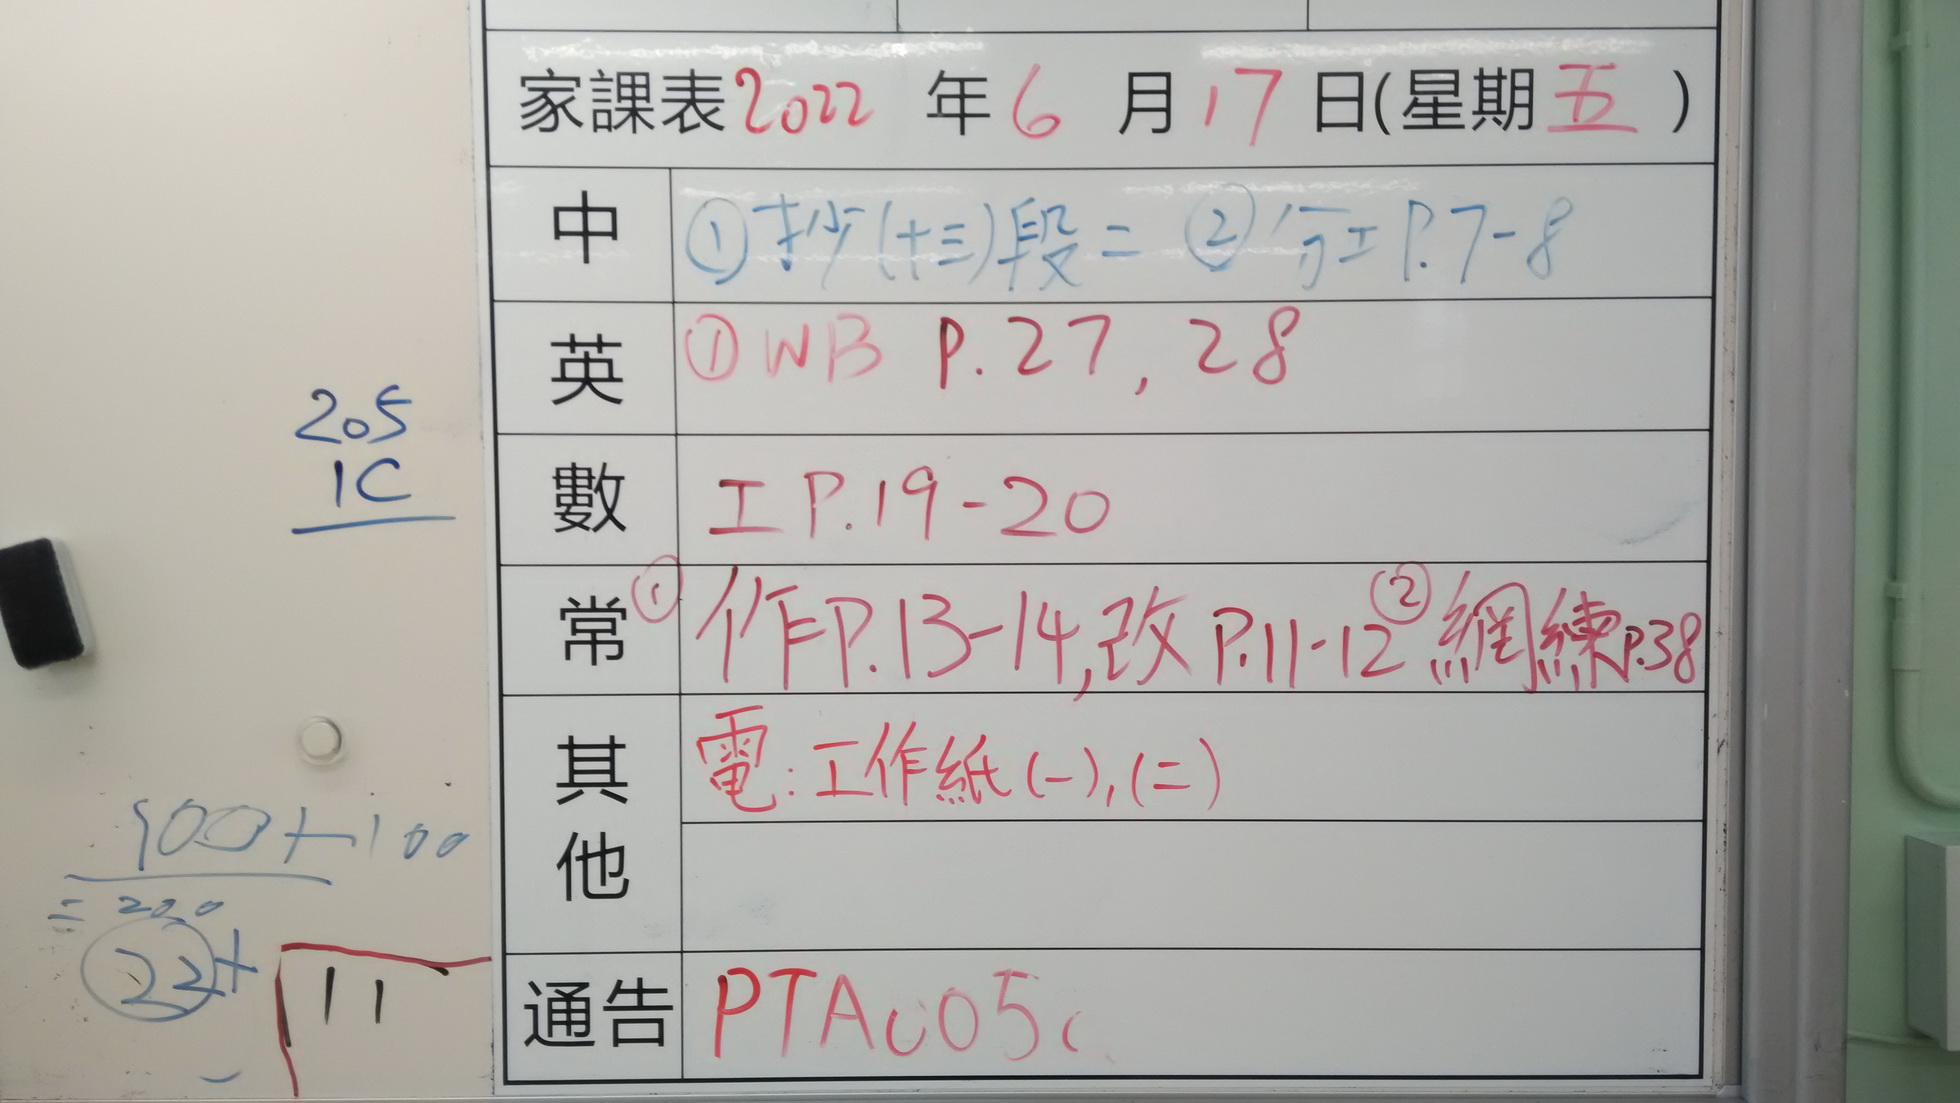 家課表2022 年 6 月 17 日(星期五)
中 ①抄(十三)段二 ②写工P.7-8
英 ①WB P.27, 28
數 工P.19-20
常 ①作P.13-14,改P.11-12 ②網練P.38
其他 電:工作紙(一),(二)
通告 PTA005
205
1C
100+100
=200
22+
11